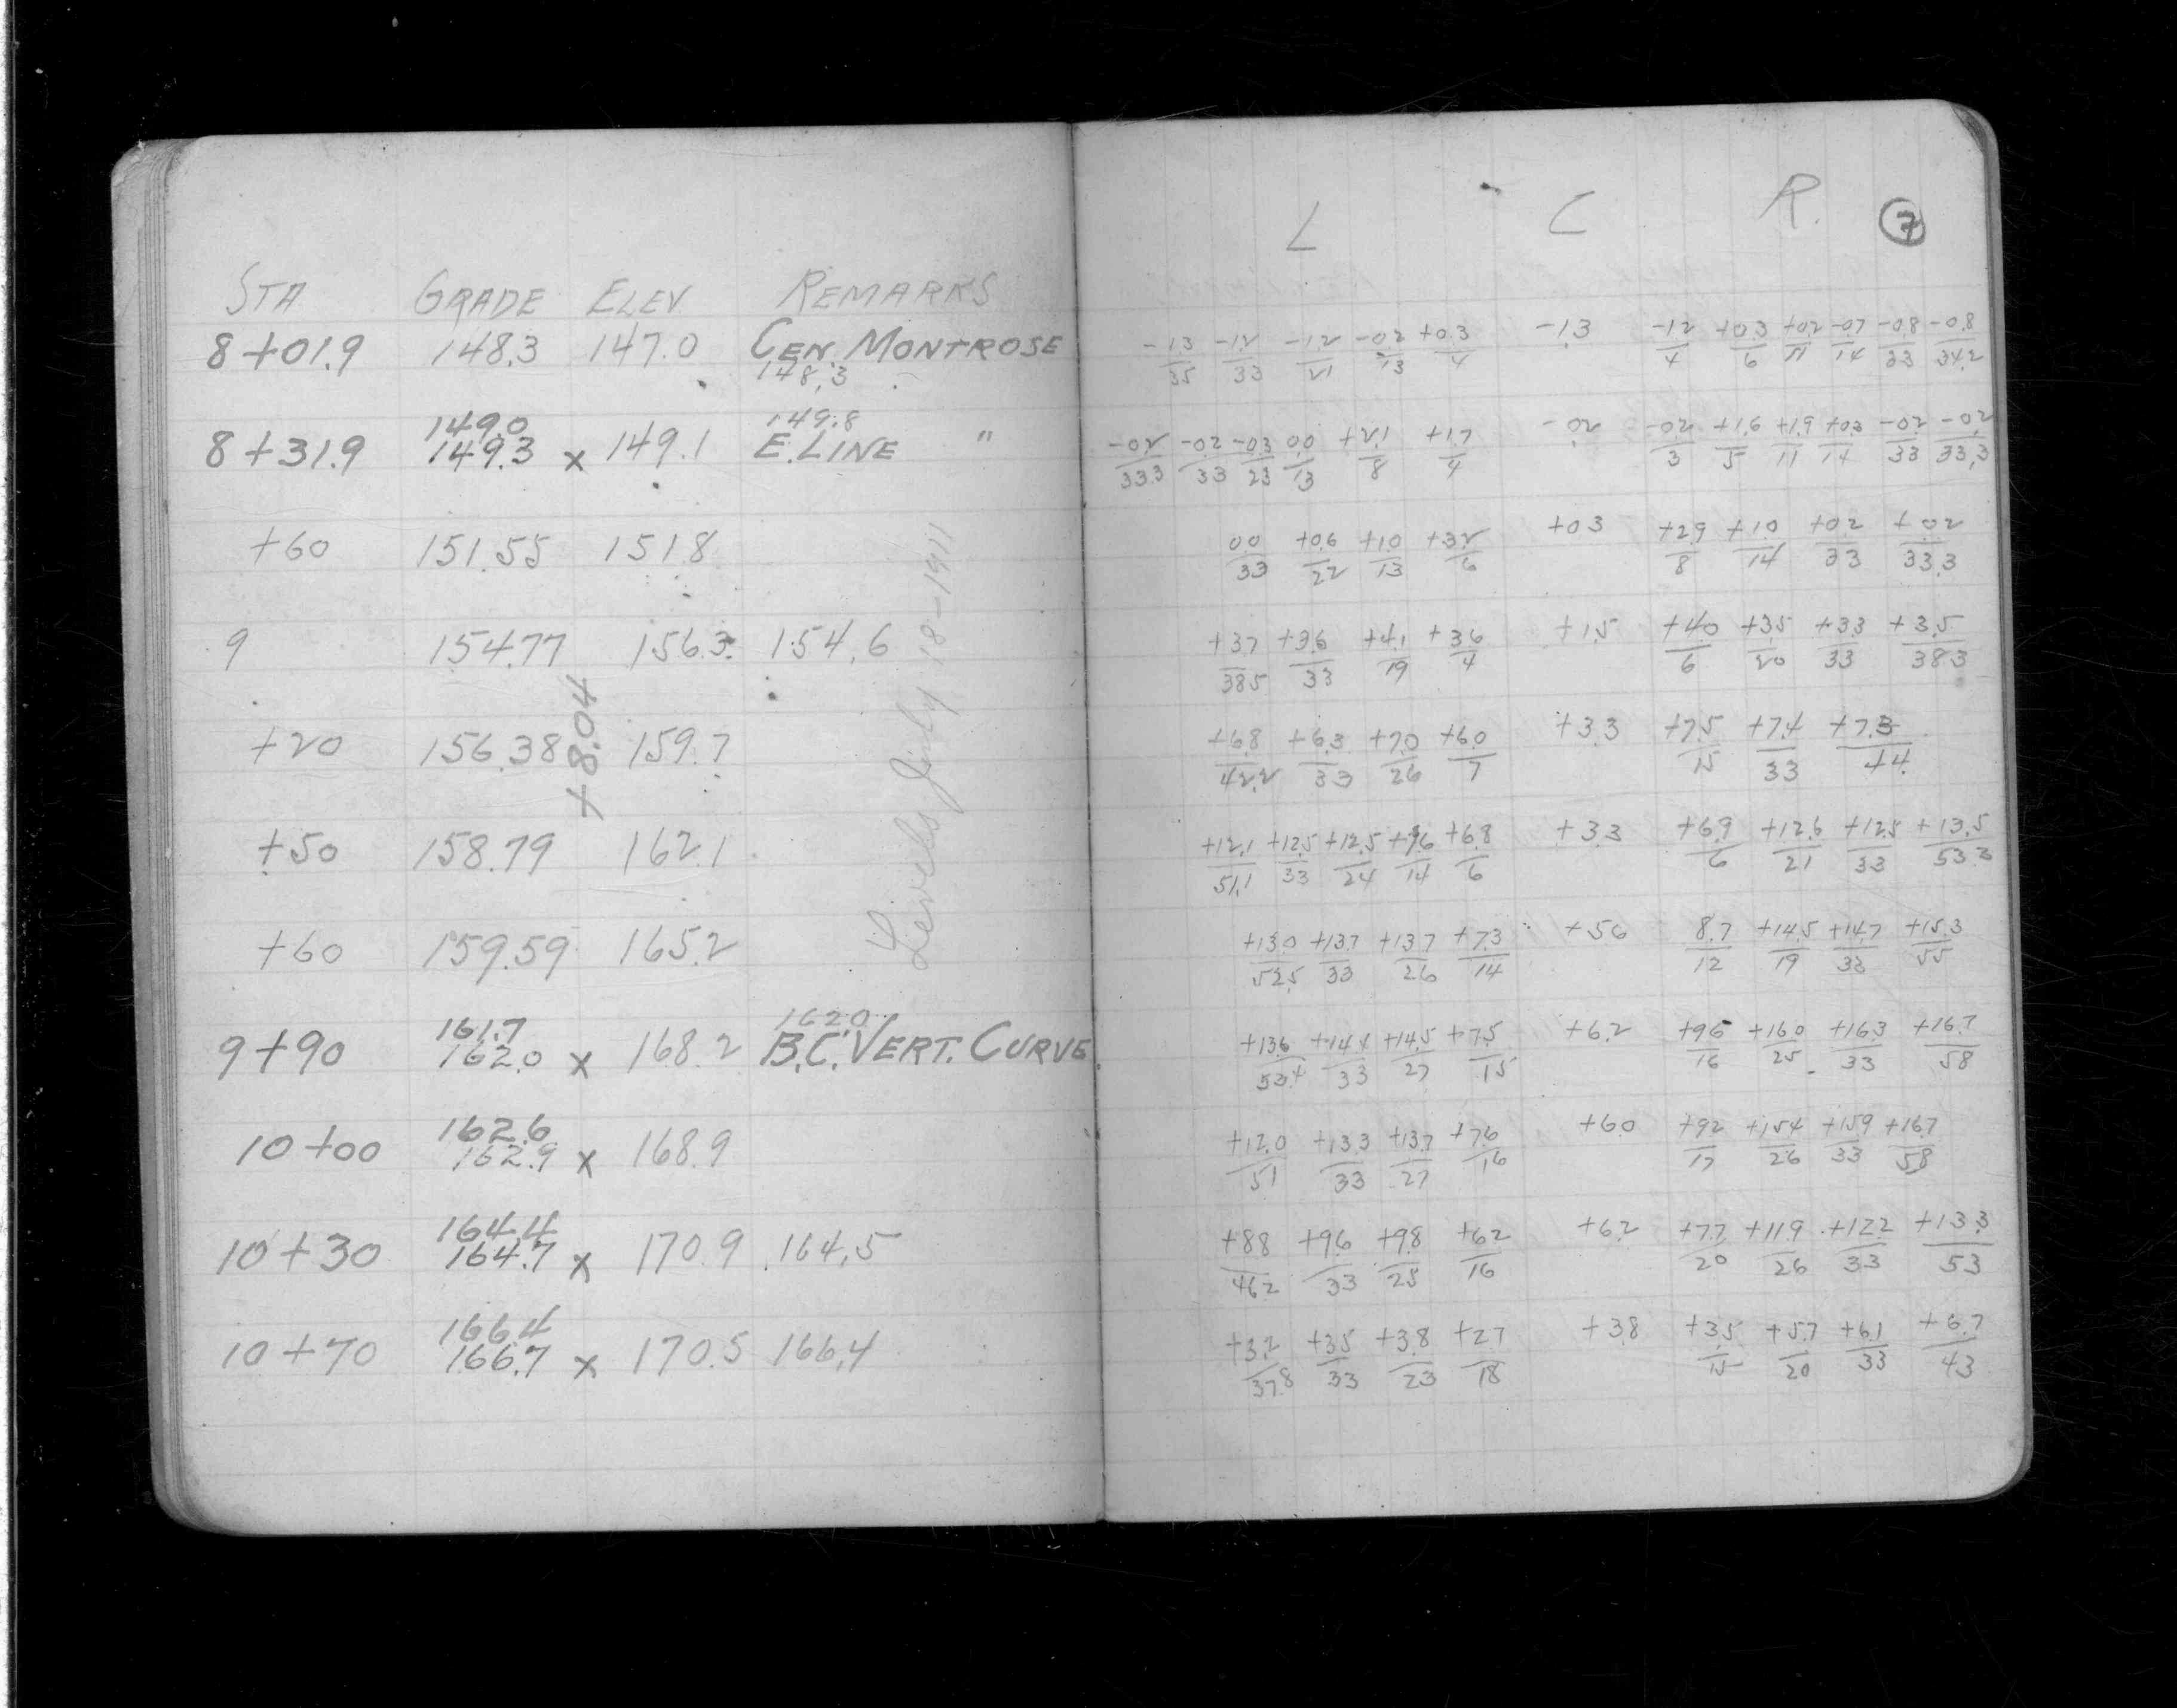 L C R. 7
STA GRADE ELEV REMARKS
8+01.9 148.3 147.0 CEN. MONTROSE
148.3
-1.3/35 -1.2/33 -1.2/21 -0.2/13 +0.3/4 -1.3 -1.2/4 +0.3/6 +0.2/11 -0.7/14 -0.8/33 -0.8/34.2
149.0 149.8
8+31.9 149.3 x 149.1 E. LINE "
-0.2/33.3 -0.2/33 -0.3/23 0.0/13 +2.1/8 +1.7/4 -0.2 -0.2/3 +1.6/5 +1.9/11 +0.3/14 -0.2/33 -0.2/33.3
+60 151.55 151.8
0.0/33 +0.6/22 +1.0/13 +3.2/6 +0.3 +2.9/8 +1.0/14 +0.2/33 +0.2/33.3
9 154.77 156.3 154.6
+3.7/38.5 +3.6/33 +4.1/19 +3.6/4 +1.5 +4.0/6 +3.5/20 +3.3/33 +3.5/38.3
+20 156.38 159.7
+6.8/42.2 +6.3/33 +7.0/26 +6.0/7 +3.3 +7.5/15 +7.4/33 +7.3/44
+8.04
+50 158.79 162.1
+12.1/51.1 +12.5/33 +12.5/24 +9.6/14 +6.8/6 +3.3 +6.9/6 +12.6/21 +12.5/33 +13.5/53.3
+60 159.59 165.2
+13.0/52.5 +13.7/33 +13.7/26 +7.3/14 +5.6 8.7/12 +14.5/19 +14.7/33 +15.3/55
Levels July 18-1911
161.7 162.0
9+90 162.0 x 168.2 B.C. VERT. CURVE
+13.6/53.4 +14.4/33 +14.5/27 +7.5/15 +6.2 +9.6/16 +16.0/25 +16.3/33 +16.7/58
162.6
10+00 162.9 x 168.9
+12.0/51 +13.3/33 +13.7/27 +7.6/16 +6.0 +9.2/17 +15.4/26 +15.9/33 +16.7/58
164.4
10+30 164.7 x 170.9 164.5
+8.8/46.2 +9.6/33 +9.8/25 +6.2/16 +6.2 +7.7/20 +11.9/26 +12.2/33 +13.3/53
166.4
10+70 166.7 x 170.5 166.4
+3.2/37.8 +3.5/33 +3.8/23 +2.7/18 +3.8 +3.5/15 +5.7/20 +6.1/33 +6.7/43